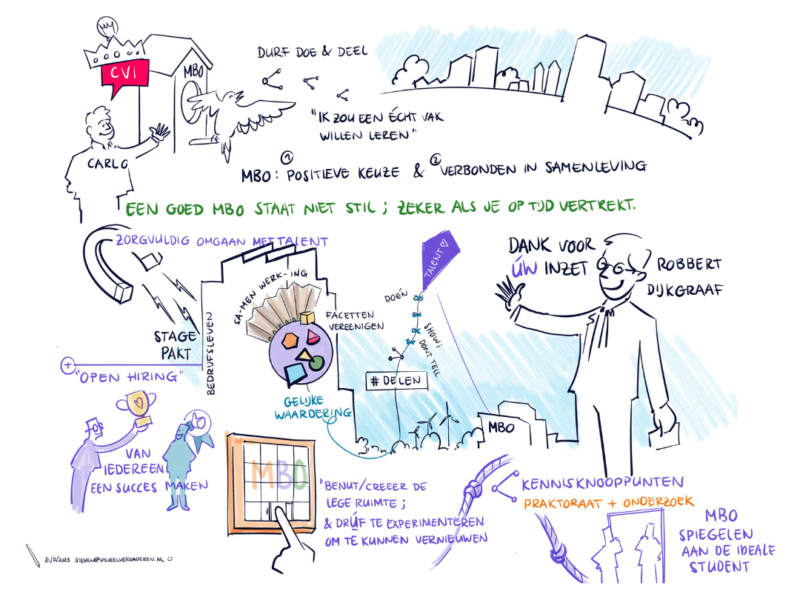 CVI
MBO
DURF DOE & DEEL
"IK ZOU EEN ÉCHT VAK
WILLEN LEREN"
CARLO
MBO: ① POSITIEVE KEUZE & ② VERBONDEN IN SAMENLEVING
EEN GOED MBO STAAT NIET STIL; ZEKER ALS JE OP TIJD VERTREKT.
ZORGVULDIG OMGAAN MET TALENT
STAGE
PAKT
+
"OPEN HIRING"
BEDRIJFSLEVEN
SA-MEN WERK-ING
FACETTEN
VEREENIGEN
GELIJKE
WAARDERING
TALENT
DOEN
SHOW;
DON'T TELL
# DELEN
MBO
DANK VOOR
ÚW INZET
ROBBERT
DIJKGRAAF
VAN
IEDEREEN
EEN SUCCES MAKEN
MBO
"BENUT/CREEER DE
LEGE RUIMTE;
& DRÚF TE EXPERIMENTEREN
OM TE KUNNEN VERNIEUWEN
KENNISKNOOPPUNTEN
PRAKTORAAT + ONDERZOEK
MBO
SPIEGELEN
AAN DE IDEALE
STUDENT